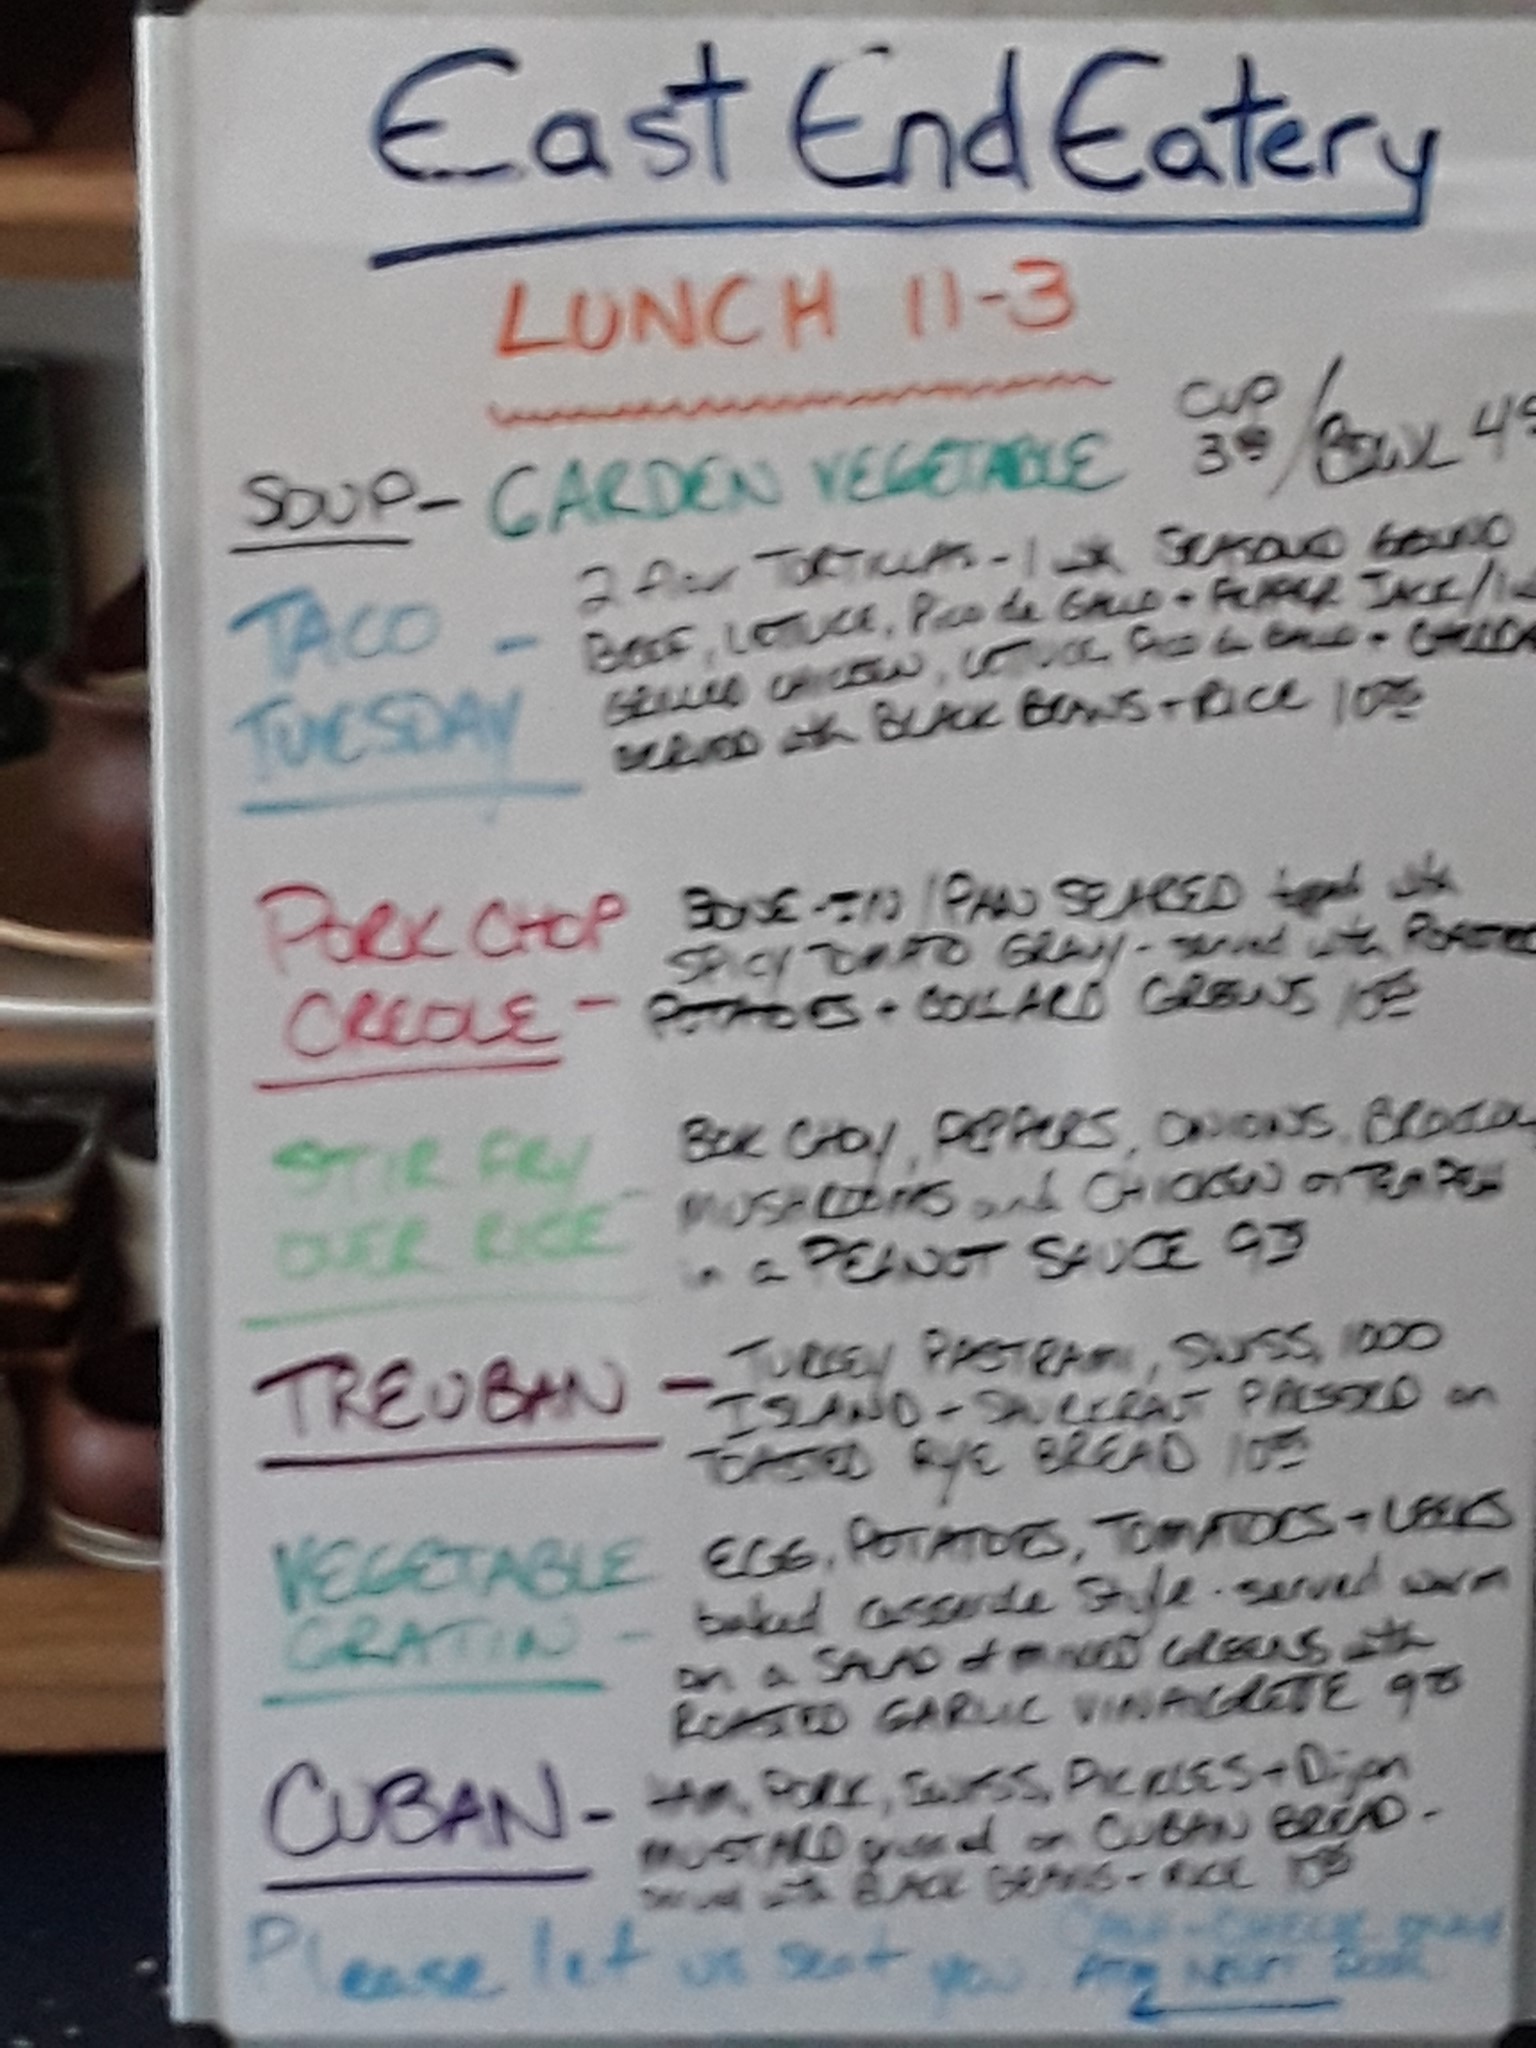 East End Eatery
LUNCH 11-3
SOUP - GARDEN VEGETABLE CUP 3 / BOWL 4
TACO TUESDAY - 2 flour TORTILLAS - 1 with SEASONED GROUND
BEEF, LETTUCE, Pico de GALLO + PEPPER JACK /1
GRILLED CHICKEN, LETTUCE, Pico de GALLO +
SERVED with BLACK BEANS + RICE 10
PORK CHOP CREOLE - BONE-IN / PAN SEARED topped with
SPICY TOMATO GRAVY - served with
POTATOES + COLLARD GREENS 10
STIR FRY OVER RICE - BOK CHOY, PEPPERS, ONIONS, BROCCOLI,
MUSHROOMS and CHICKEN or TEMPEH
in a PEANUT SAUCE 9
TREUBAN - TURKEY PASTRAMI, SWISS, 1000
ISLAND + SAUERKRAUT PRESSED on
TOASTED RYE BREAD 10
VEGETABLE GRATIN - EGG, POTATOES, TOMATOES + LEEKS
baked casserole style - served warm
on a SALAD of MIXED GREENS with
ROASTED GARLIC VINAIGRETTE 9
CUBAN - HAM, PORK, SWISS, PICKLES + Dijon
MUSTARD pressed on CUBAN BREAD -
with BLACK BEANS + RICE
Please let us seat you
ATM NEXT DOOR